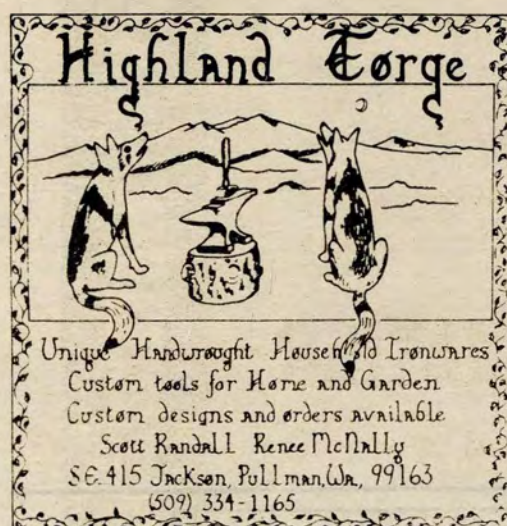 Highland Forge
Unique Handwrought Household Ironwares
Custom tools for Home and Garden
Custom designs and orders available
Scott Randall Renee McNally
S.E. 415 Jackson, Pullman, Wa, 99163
(509) 334-1165